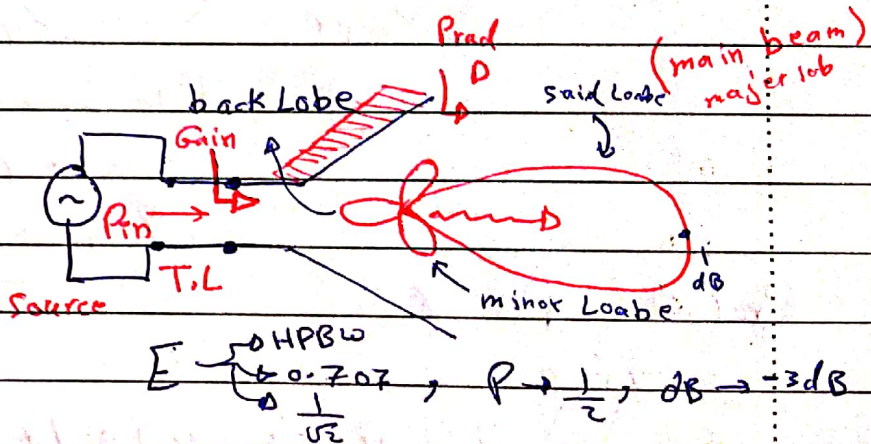 Prad
(main beam)
majer lob
back Lobe
said Loabe
Gain
~
Pin
T.L
dB
Source
minor Loabe
E → HPBW
→ 0.707 , P → 1/2 , dB → -3dB
→ 1/√2